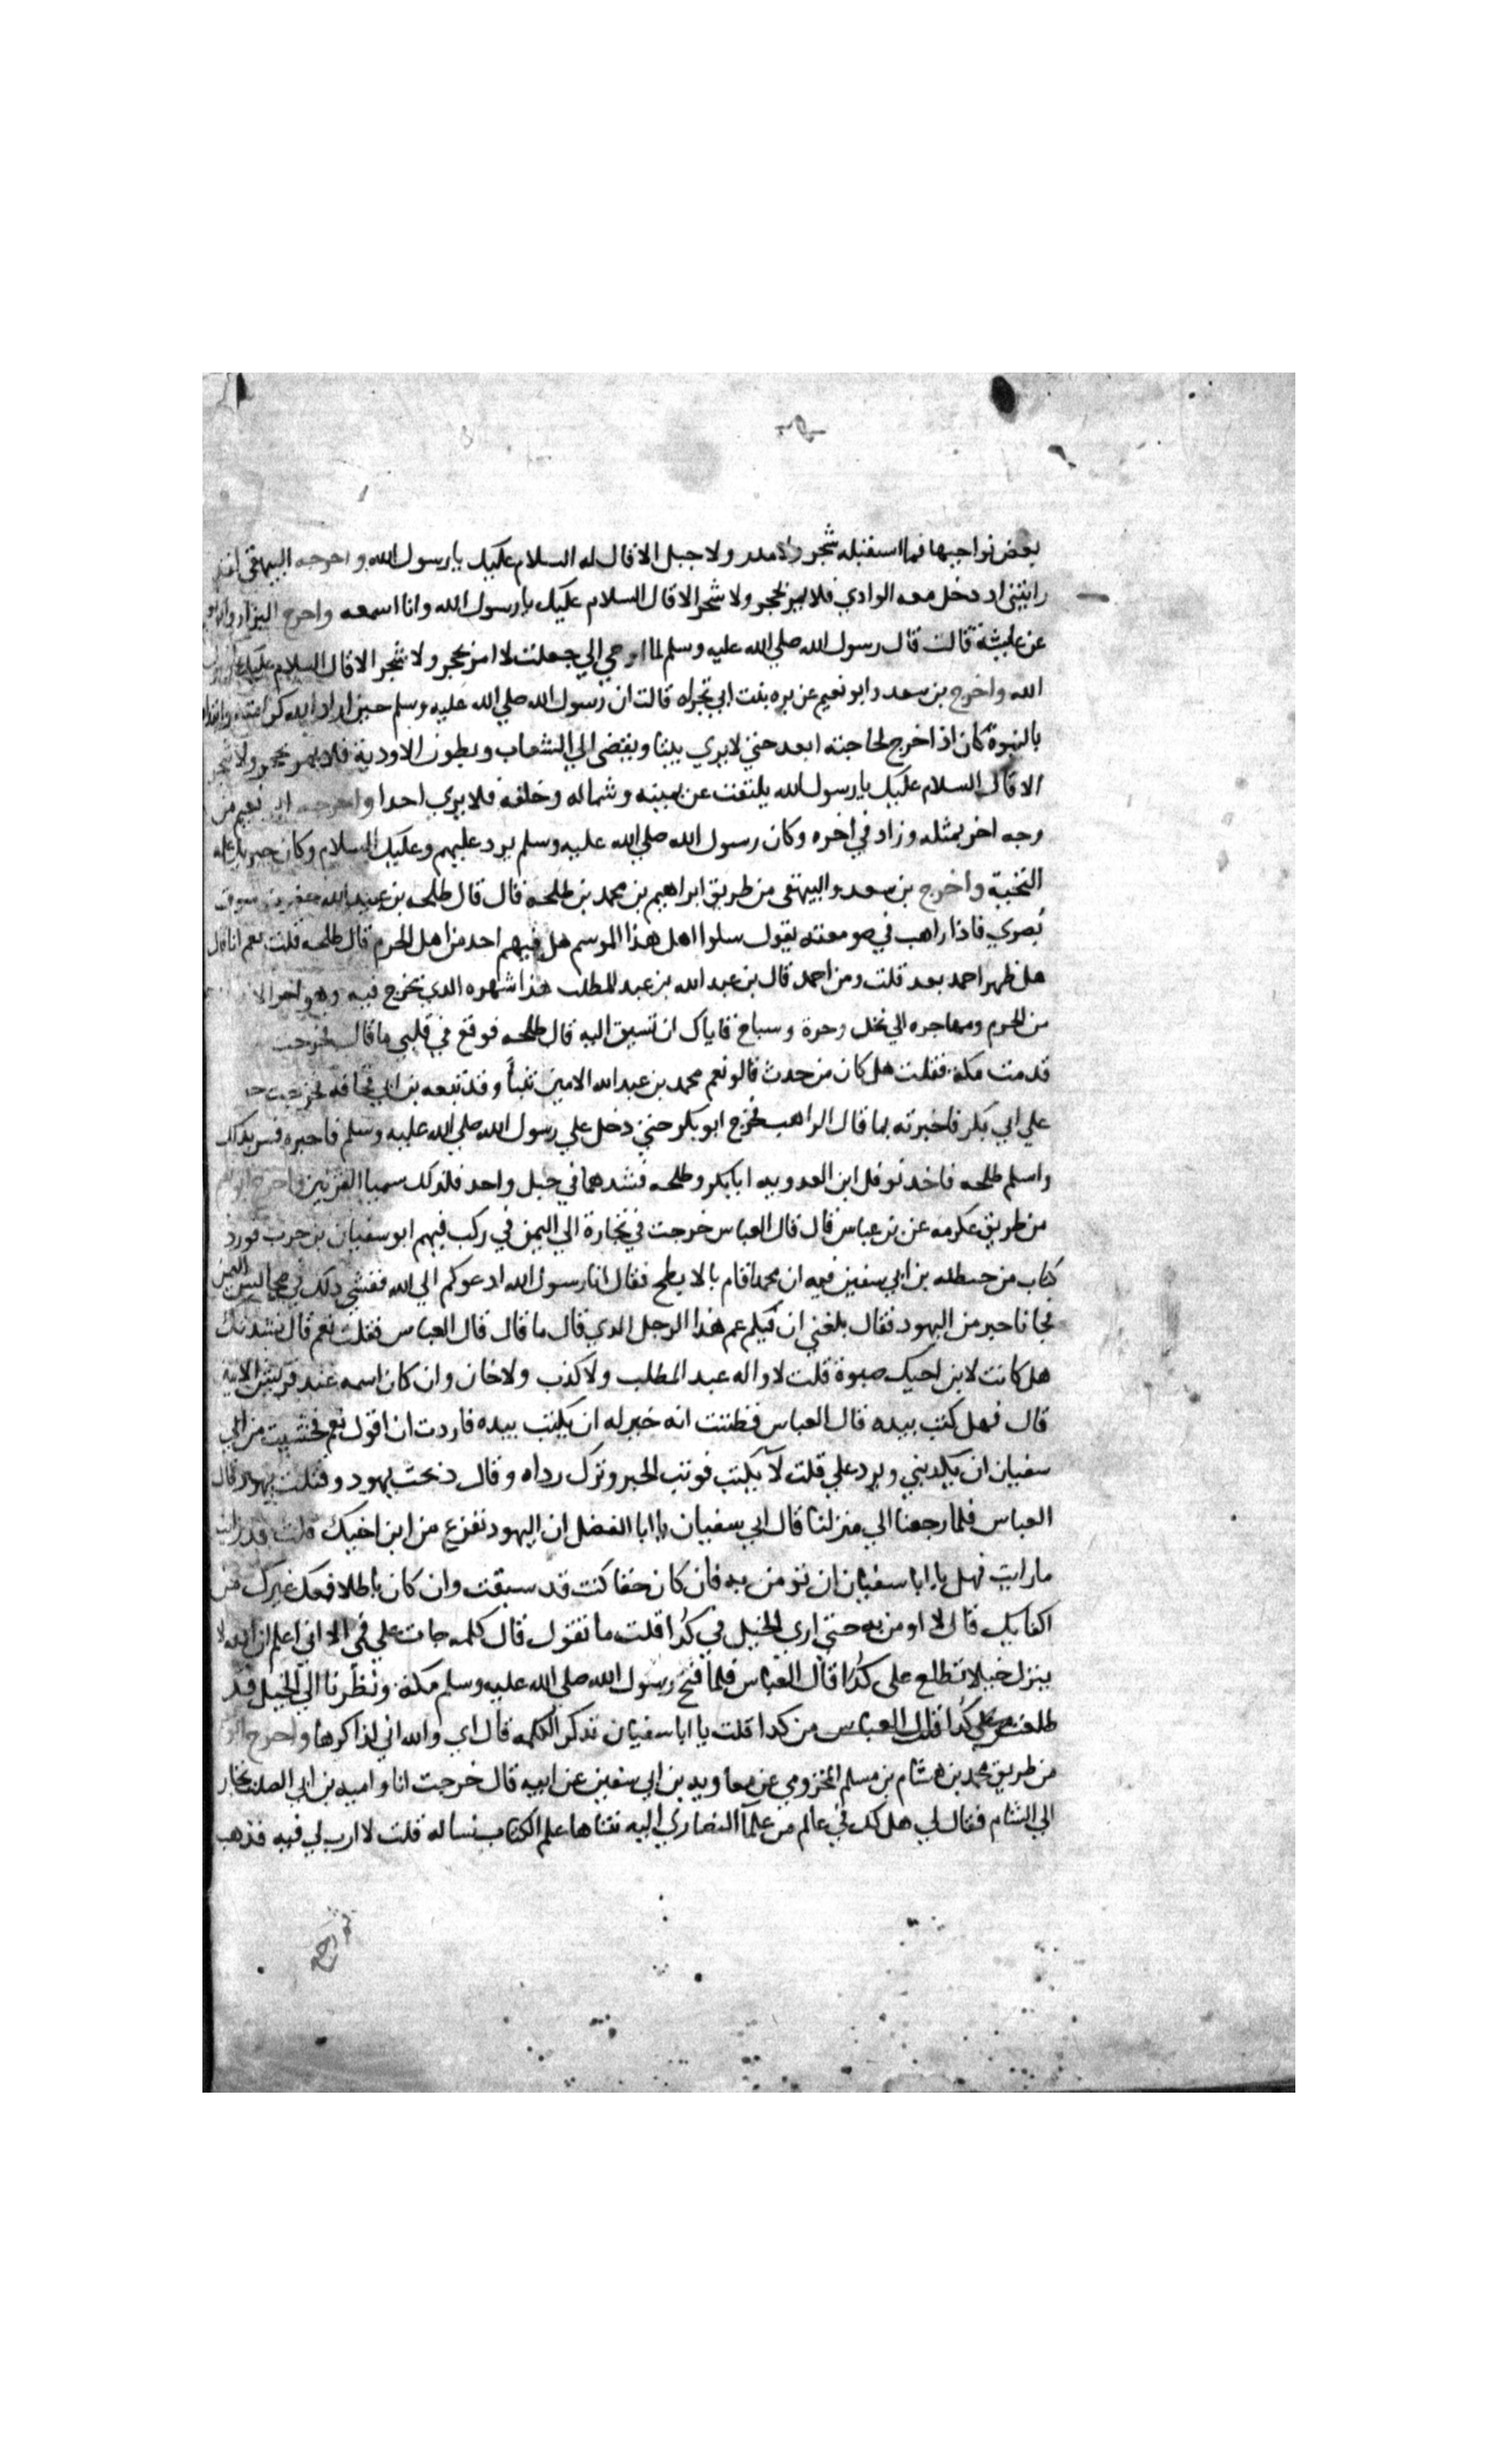 بعض نواحيها فما استقبله شجر ولا مدر ولا جبل الا قال له السلام عليك يا رسول الله واخرجه البيهقي
رايتني ادخل معه الوادي فلا يمر بحجر ولا شجر الا قال السلام عليك يا رسول الله وانا اسمعه واخرج البزار وابو
عن عايشة قالت قال رسول الله صلي الله عليه وسلم لما اوحي الي جعلت لا امر بحجر ولا شجر الا قال السلام عليك يا رسول
الله واخرج بن سعد وابو نعيم عن بره بنت ابي تجراه قالت ان رسول الله صلي الله عليه وسلم حين اراد الله كرامته وابتداه
بالنبوة كان اذا خرج لحاجته ابعد حتي لا يري بيتا ويفضى الي الشعاب وبطون الاودية فلا يمر بحجر ولا شجر
الا قال السلام عليك يا رسول الله يلتفت عن يمينه وشماله وخلفه فلا يري احدا واخرجه ابو نعيم من
وجه اخر بمثله وزاد في اخره وكان رسول الله صلي الله عليه وسلم يرد عليهم وعليك السلام وكان جبريل علمه
التحية واخرج بن سعد والبيهقى من طريق ابراهيم بن محمد بن طلحه قال قال طلحه بن عبيد الله حضرت سوق
بصري فاذا راهب في صومعته يقول سلوا اهل هذا الموسم هل فيهم احد من اهل الحرم قال طلحه قلت نعم انا قال
هل ظهر احمد بعد قلت ومن احمد قال بن عبد الله بن عبد المطلب هذا شهره الذي يخرج فيه وهو اخر الا
من الحرم ومهاجره الي نخل وحرة وسباخ فاياك ان تسبق اليه قال طلحه فوقع في قلبي ما قال فخرجت
قدمت مكة فقلت هل كان من حدث قالو نعم محمد بن عبد الله الامين تنبأ وقد تبعه بن ابي قحافه فخرجت
علي ابي بكر فاخبرته بما قال الراهب فخرج ابو بكر حتي دخل علي رسول الله صلي الله عليه وسلم فاخبره فسر بذلك
واسلم طلحه فاخذ نوفل ابن العدويه ابا بكر وطلحه فشدهما في حبل واحد فلذلك سميا القرنين واخرج ابو نعيم
من طريق عكرمه عن بن عباس قال قال العباس خرجت في تجارة الي اليمن في ركب فيهم ابو سفيان بن حرب فورد
كتاب من حنظله بن ابي سفين فيه ان محمدا قام بالابطح فقال انا رسول الله ادعوكم الي الله ففشي ذلك في مجالس اليمن
فجانا حبر من اليهود فقال بلغني ان فيكم عم هذا الرجل الذي قال ما قال قال العباس فقلت نعم قال نشدتك
هل كانت لابن اخيك صبوة قلت لا واله عبد المطلب ولا كذب ولا خان وان كان اسمه عند قريش الامين
قال فهل كتب بيده قال العباس فظننت انه خير له ان يكتب بيده فاردت ان اقول نعم فخشيت من ابي
سفيان ان يكذبني ويرد علي قلت لا يكتب فوثب الحبر وترك رداه وقال ذبحت يهود وقتلت يهود قال
العباس فلما رجعنا الي منزلنا قال ابي سفيان يا ابا الفضل ان اليهود تفزع من ابن اخيك قلت قد رايت
ما رايت فهل يا ابا سفيان ان تومن به فان كان حقا كنت قد سبقت وان كان باطلا فمعك غيرك من
اكفايك قال لا اومن به حتي اري الخيل في كدا قلت ما تقول قال كلمه جات علي فمي الا اني اعلم ان الله لا
ينزل خيلا تطلع على كدا قال العباس فلما فتح رسول الله صلي الله عليه وسلم مكة ونظرنا الي الخيل قد
طلعت من كدا قلت يا ابا سفيان تذكر الكلمه قال اي والله اني لذاكرها واخرج ابو
من طريق محمد بن هشام بن مسلم المخزومي عن معاويه بن ابي سفين عن ابيه قال خرجت انا واميه بن ابي الصلت تجار
الي الشام فقال لي هل لك في عالم من علمآ النصاري اليه تناها علم الكتاب نساله قلت لا ارب لي فيه فذهب